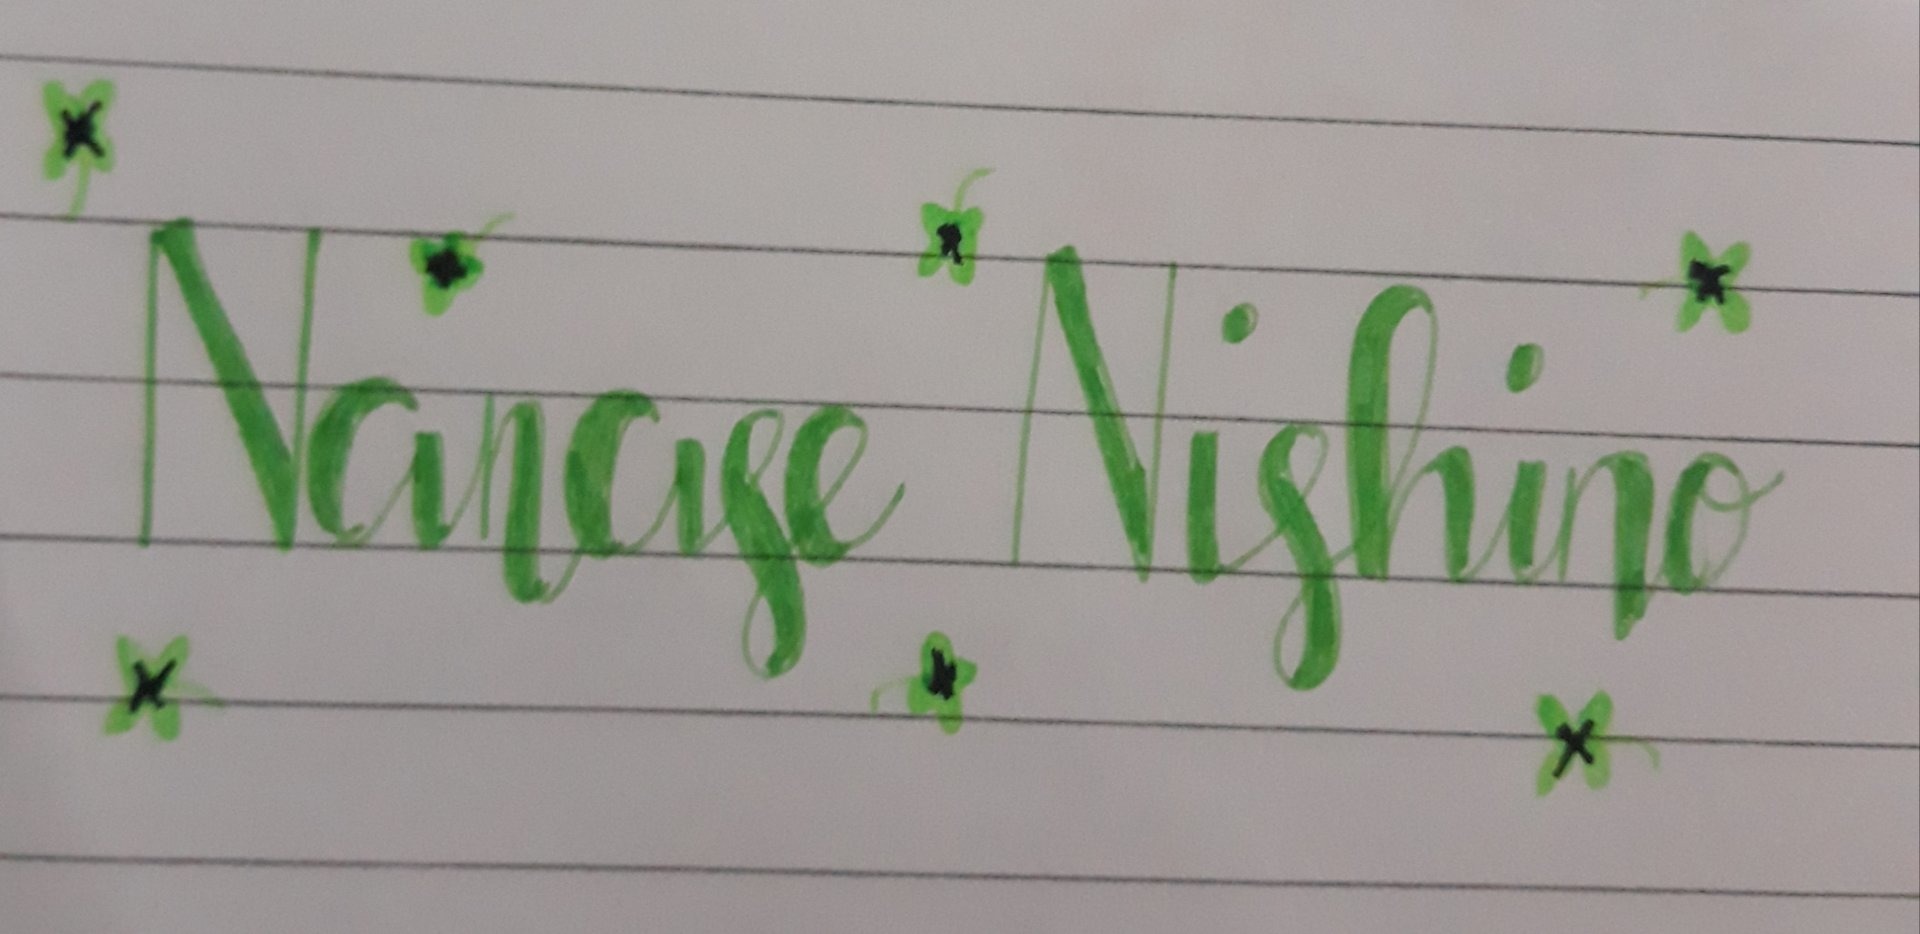 Nanase Nishino